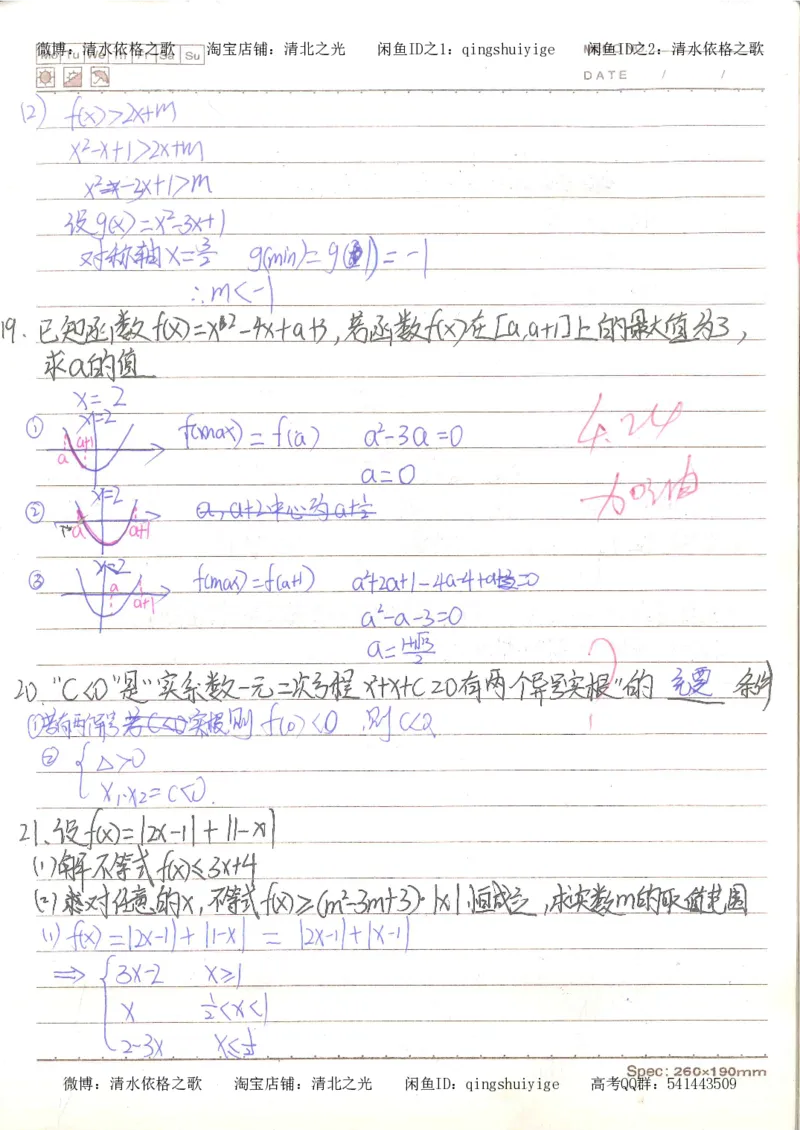 微博：清水依格之歌 淘宝店铺：清北之光 闲鱼ID之1：qingshuiyige 闲鱼ID之2：清水依格之歌
Mo Tu We Th Fr Sa Su
DATE / /
(2) f(x)>2x+m
x²-x+1>2x+m
x²-3x+1>m
设g(x)=x²-3x+1
对称轴x=3/2 g(min)=g(1)=-1
∴m<-1
19. 已知函数f(x)=x²-4x+a+3,若函数f(x)在[a,a+1]上的最大值为3,
求a的值
x=2
① x=2 a a+1 f(max)=f(a) a²-3a=0
4.24
a=0
加油
② x=2 a a+1 a,a+2中心为a+1/2
③ x=2 a a+1 f(max)=f(a+1) a²+2a+1-4a-4+a=0
a²-a-3=0
a=(1+√13)/2
20 "C<0"是"实系数一元二次方程x²+x+C=0有两个异号实根"的 充要 条件
①若有两异号实根则 f(0)<0 则C<0
② { Δ>0
x₁·x₂=C<0.
21.设f(x)=|2x-1|+|1-x|
(1)解不等式f(x)≤3x+4
(2)求对任意的x,不等式f(x)≥(m²-3m+3)·|x|恒成立,求实数m的取值范围
(1) f(x)=|2x-1|+|1-x| = |2x-1|+|x-1|
⇒ { 3x-2 x≥1
x 1/2<x<1
2-3x x≤1/2
Spec: 260×190mm
微博：清水依格之歌 淘宝店铺：清北之光 闲鱼ID：qingshuiyige 高考QQ群：541443509